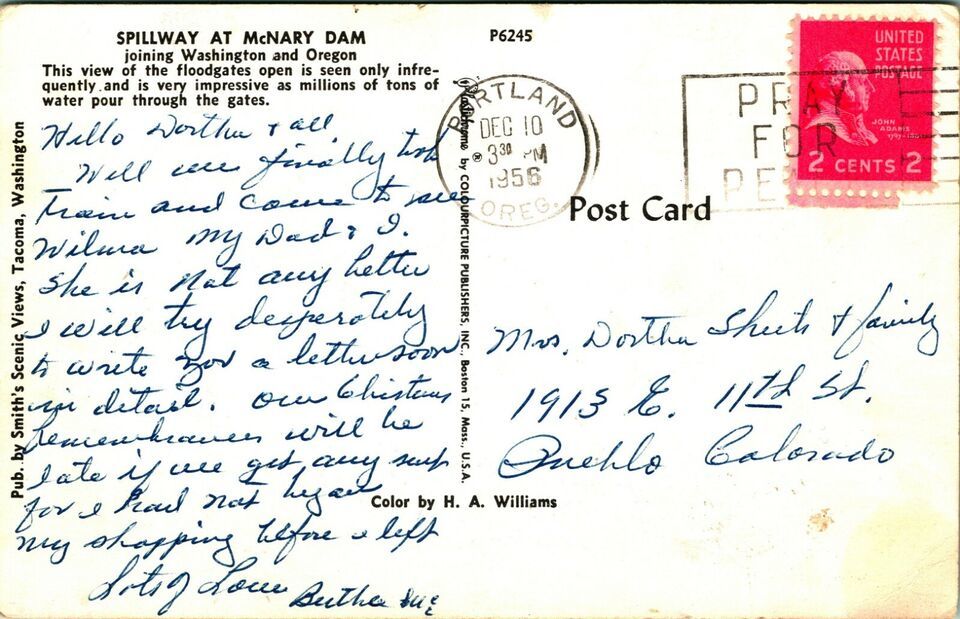 SPILLWAY AT McNARY DAM
joining Washington and Oregon
This view of the floodgates open is seen only infre-
quently and is very impressive as millions of tons of
water pour through the gates.
P6245
Hello Dortha & all,
Well we finally took
train and come to see
Wilma my Dad & I.
She is not any better
I will try desperately
to write you a letter soon
in detail. Our Christmas
remembrances will be
late if we get any
for I had not began
my shopping before I left
Lots of Love
Bertha
Pub. by Smith's Scenic Views, Tacoma, Washington
Plastichrome ® by COLOURPICTURE PUBLISHERS, INC., Boston 15, Mass., U.S.A.
PORTLAND
DEC 10
3 30 PM
1956
OREG.
PRAY
FOR
PEACE
UNITED
STATES
POSTAGE
JOHN
ADAMS
2 CENTS 2
Post Card
Mrs. Dortha Sheets & family
1913 E. 11th St.
Pueblo Colorado
Color by H. A. Williams